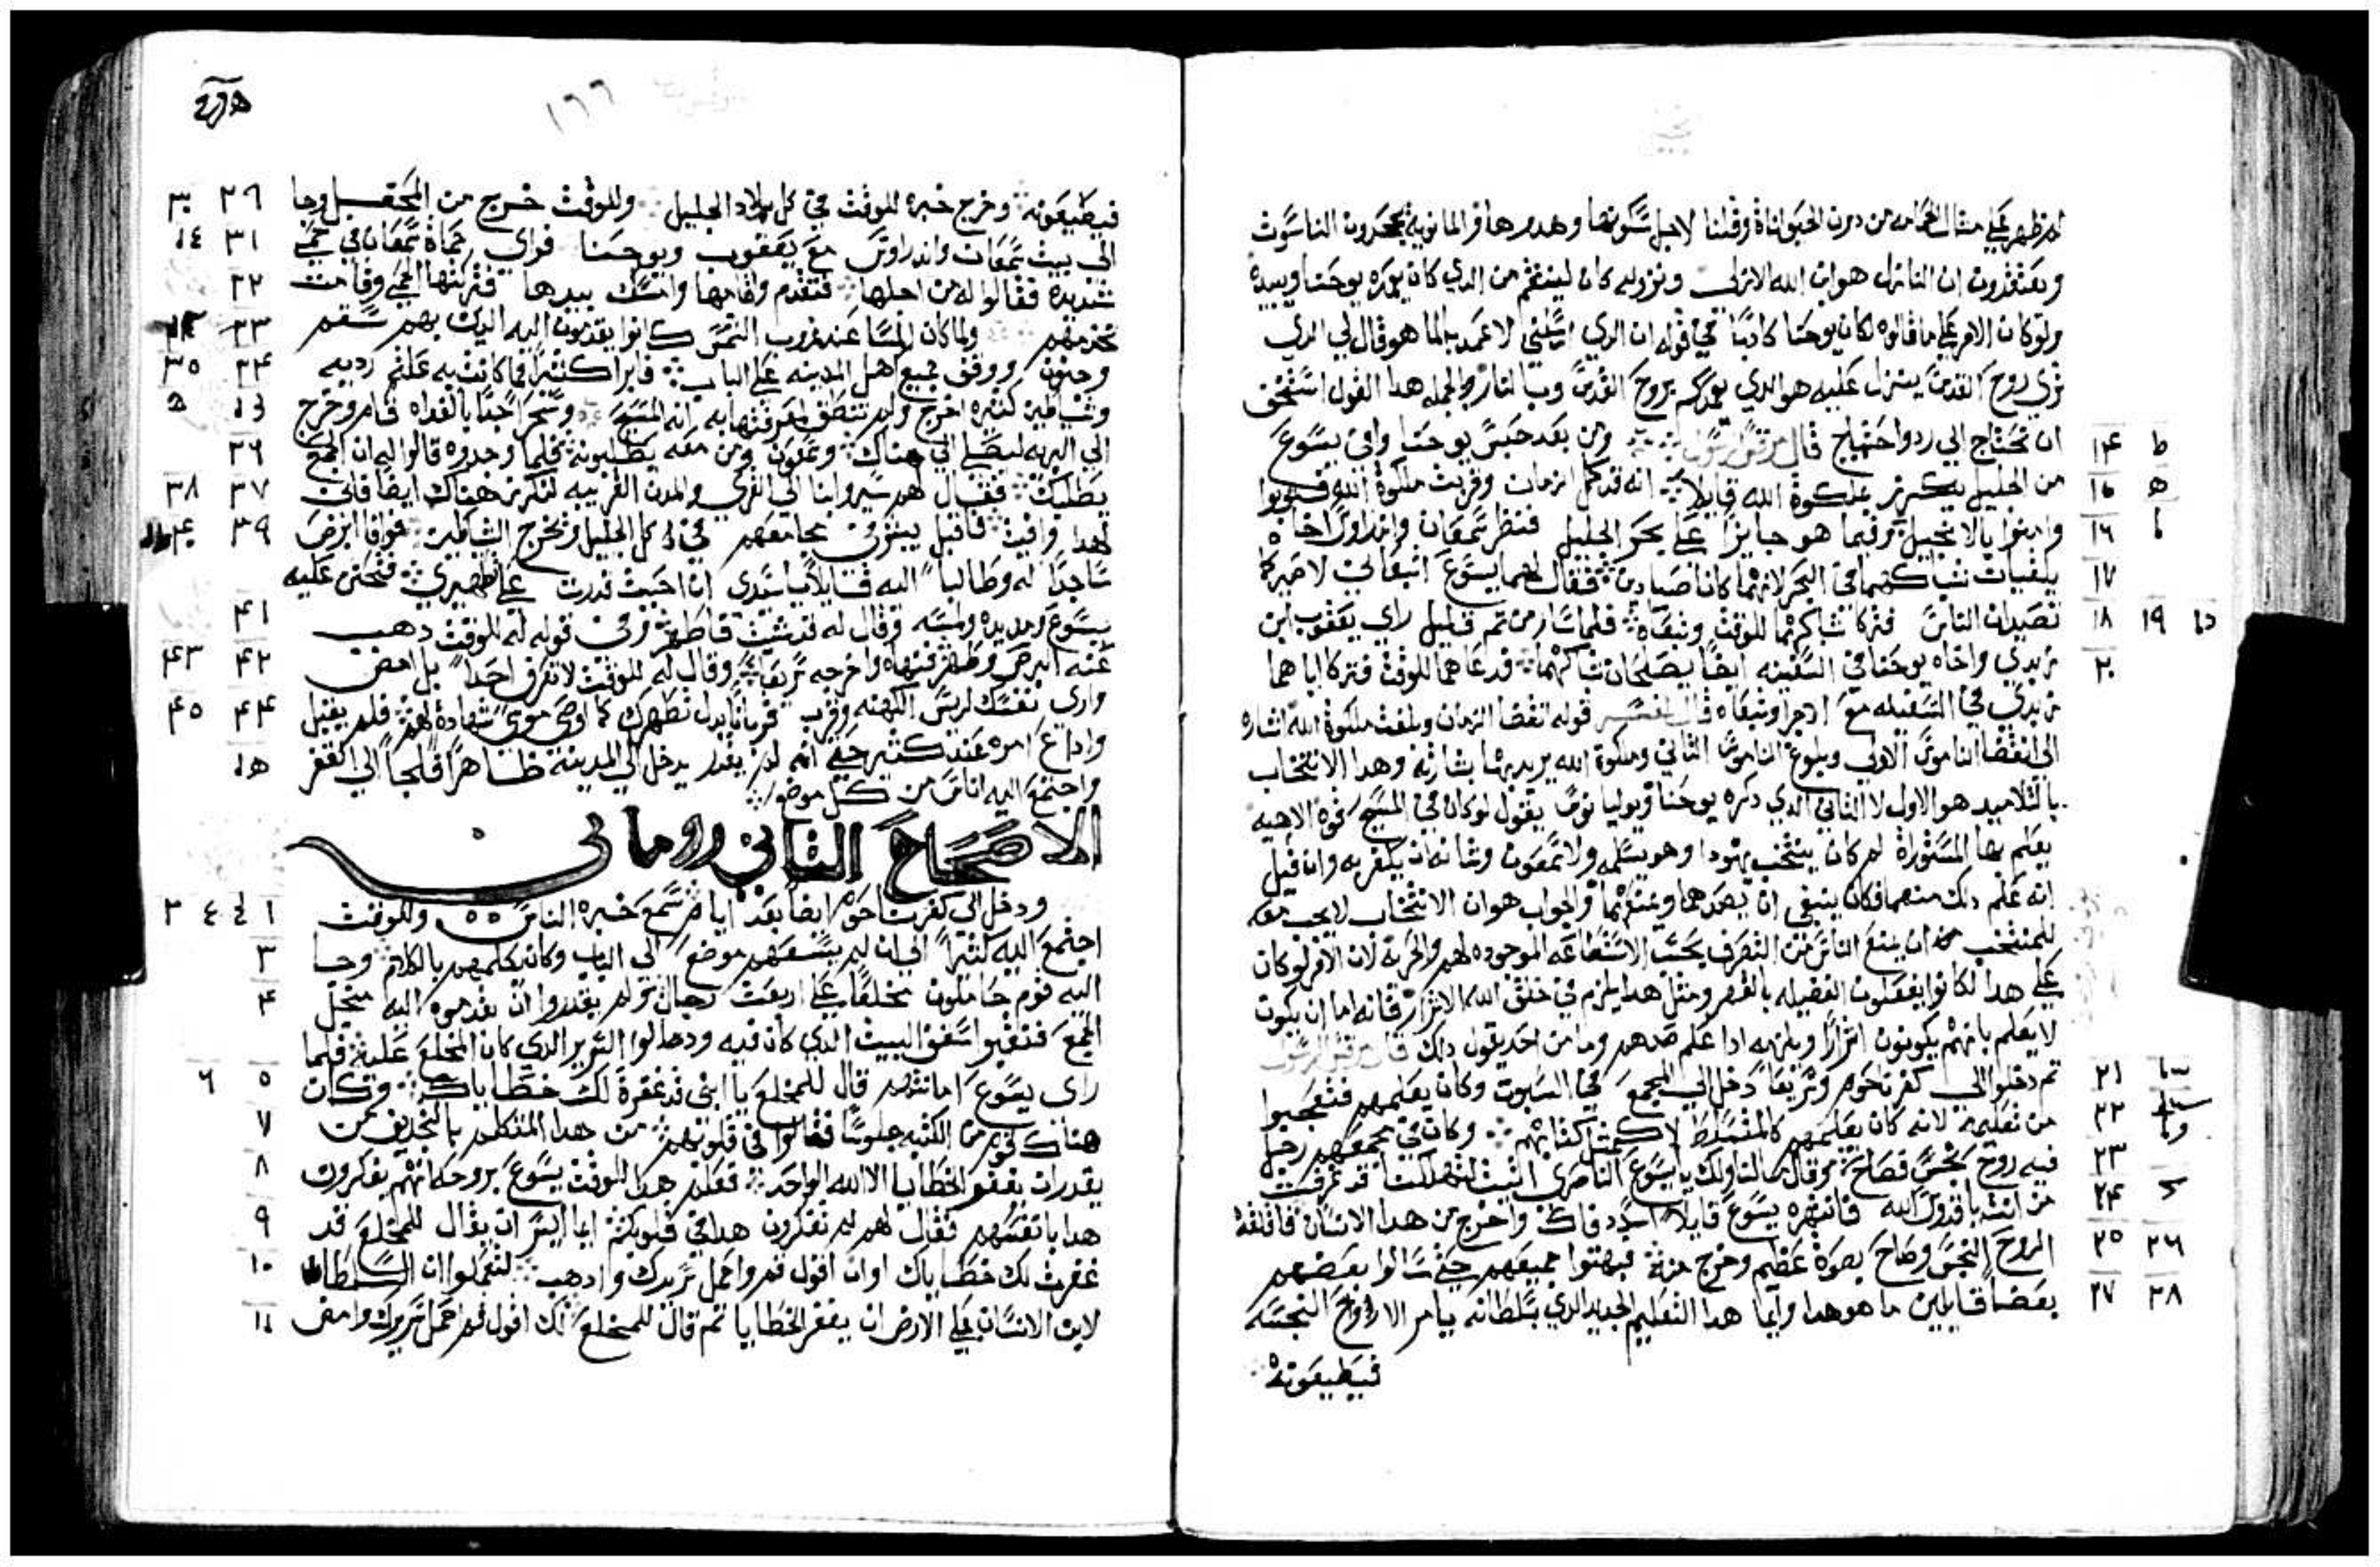 ويعتقدون ان النازل هو ابن الله الازلي ونزوله كان ليعتمد من الدي كان يعمده يوحنا وبيده
ولو كان الامر على ما قالوه لكان يوحنا كادبا في قوله ان الدي ارسلني لاعمد بالما هو قال لي الدي
تري روح القدس ينزل عليه هو الدي يعمدكم بروح القدس وبالنار وبالجمله هدا القول اسخف
ان نحتاج الي رد واحتجاج قال مرقس الرسول ومن بعد حبس يوحنا وافى يسوع ١٤ ط
من الجليل يكرز بملكوة الله قايلا انه قد كمل الزمان وقربت ملكوة الله فتوبوا ١٥ ه
وامنوا بالانجيل وفيما هو جايزا على بحر الجليل فنظر سمعان واندراوس اخاه ١٦
يلقيان شباكهما في البحر لانهما كانا صيادين فقال لهما يسوع اتبعاني لاصيركما ١٧
تصيدان الناس فتركا شباكهما للوقت وتبعاه فلما سار من تم قليل راي يعقوب ابن ١٨ ١٩
زبدي واخاه يوحنا في السفينه ايضا يصلحان شباكهما فدعاهما للوقت فتركا اباهما ٢٠
زبدي في السفينه مع الاجرا وتبعاه قال المفسر قوله انقضا الزمان وبلغت ملكوة الله اشاره
الي انقضا الناموس الاولي وبلوغ الناموس الثاني وملكوة الله يريد بها بشارته وهدا الانتخاب
بالتلاميد هو الاول لا الثاني الدي دكره يوحنا ويوليانوس يقول لو كان في المسيح قوه الاهيه
يعلم بها المستوراة لم كان ينتخب يهودا وهو يسلمه ولا سمعون وشانه ان يكفر به وان قيل
انه علم دلك منهما فكان ينبغي ان يصدهما ويمنعهما والجواب هو ان الانتخاب لا يجب معه
للمنتخب ان يمنع الناس من التصرف بحسب الاستطاعه الموجوده لهم والحريه لان الامر لو كان
على هدا لكانوا يفعلون الفضيله بالقهر ومثل هدا يلزم في خلق الله الاشرار فانه اما ان يكون
لا يعلم بانهم يكونون اشرارا ويلزمه ادا علم صدهم وما من احد يقول دلك قال مرقس الرسول
تم دخلوا الي كفرناحوم وسريعا دخل الي المجمع في السبوت وكان يعلمهم فتعجبوا ٢١
من تعليمه لانه كان يعلمهم كالمتسلط لا كمثل كتابهم وكان في مجمعهم رجل ٢٢
فيه روح نجس فصاح وقال ما لنا ولك يا يسوع الناصري اتيت لتهلكنا قد عرفت ٢٣
من انت يا قدوس الله فانتهره يسوع قايلا اسدد فاك واخرج من هدا الانسان فاقلقه ٢٤
الروح النجس وصاح بصوة عظيم وخرج منه فبهتوا جميعهم حتى سالوا بعضهم ٢٥ ٢٦
بعضا قايلين ما هو هدا وايما هدا التعليم الجديد الدي بسلطانه يامر الارواح النجسه ٢٧ ٢٨
فيطيعونه
١٦٦
فيطيعونه وخرج خبره للوقت في كل بلاد الجليل وللوقت خرج من المحفل وجا ٢٩ ٣٠
الي بيت سمعان واندراوس مع يعقوب ويوحنا فراي حماة سمعان في حمى ٣١
شديده فقالوا له من اجلها فتقدم واقامها وامسك بيدها فتركتها الحمى وقامت ٣٢
تخدمهم ولما كان المسا عند غروب الشمس كانوا يقدمون اليه الدين بهم سقم ٣٣
وجنون ووقف جميع اهل المدينه على الباب فابرا كثيرا مما كانت به علتهم رديه ٣٤ ٣٥
وشياطين كثيره اخرج ولم تنطق لمعرفتها به انه المسيح وسحرا جدا بالغداه قام وخرج
الي البريه ليصلي هناك وسمعون ومن معه يطلبونه فلما وجدوه قالوا له ان الجمع ٣٦
يطلبك فقال لهم سيروا بنا الي القري والمدن القريبه لنكرز هناك ايضا فانى ٣٧ ٣٨
لهدا وافيت فاقبل يبشر في مجامعهم في كل الجليل ويخرج الشياطين فوافا ابرص ٣٩
ساجدا له وطالبا اليه قايلا يا سيدي ان احببت قدرت على تطهيري فتحنن عليه
يسوع ومد يده ولمسه وقال له قد شيت فاطهر وفي قوله له للوقت دهب ٤١
عنه البرص وطهر فنهاه واخرجه سريعا وقال له للوقت لا تعرف احدا بل امض ٤٢ ٤٣
واري نفسك لريس الكهنه وقرب قربانا بدل تطهرك كما اوصى موسى شهادة لهم فلم يقبل ٤٤ ٤٥
واداع امره عند كثير حتى انه لم يقدر يدخل الي المدينه ظاهرا فلجا الي القفر
واجتمع اليه اناس من كل موضع
الاصحاح الثاني روماني
ودخل الي كفرناحوم ايضا بعد ايام سمع خبره الناس وللوقت ١
اجتمع اليه كثيرا الي ان لم يسعهم موضع الي الباب وكان يكلمهم بالكلام وجا ٣
اليه قوم حاملون مخلعا على اربعت رجال ولم يقدروا ان يقدموه اليه من اجل ٤
الجمع فنقبوا سقف البيت الدي كان فيه ودحالوا السرير الدي كان المخلع عليه فلما
راى يسوع امانتهم قال للمخلع يا ابني قد غفرة لك خطاياك وكان ٥ ٦
هناك قوم من الكتبه جلوسا فقالوا في قلوبهم من هدا المتكلم بالتجديف من ٧
يقدر ان يغفر الخطايا الا الله الواحد فعلم هدا للوقت يسوع بروحه انهم يفكرون ٨
هدا بانفسهم فقال لهم لم تفكرون هدا في قلوبكم ايما ايسر ان يقال للمخلع قد ٩
غفرت لك خطاياك او ان اقول قم واحمل سريرك وادهب لتعملوا ان السلطان ١٠
لابن الانسان على الارض ان يغفر الخطايا تم قال للمخلع لك اقول قم احمل سريرك وامض ١١